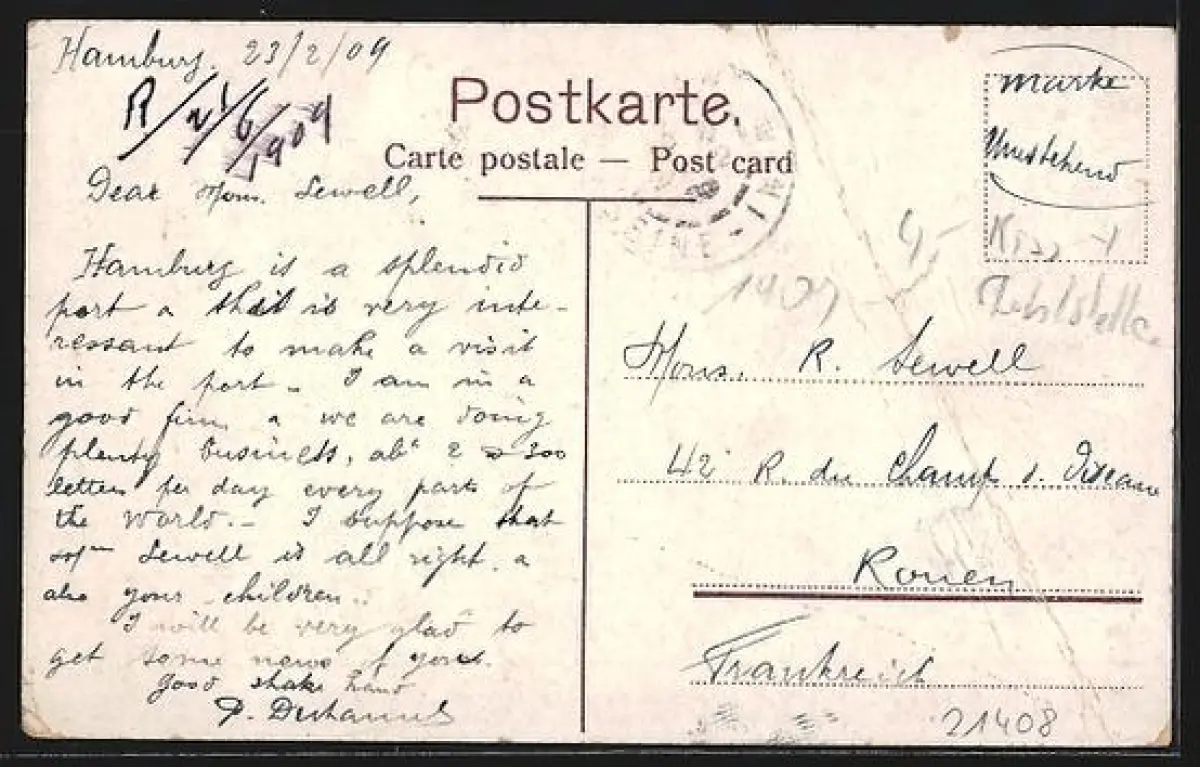 Hamburg. 23/2/09
R/21/6/1909
Postkarte.
Carte postale — Post card
Marke
Umstehend
Dear Mons. Sewell,
Hamburg is a splendid
port a that is very inte-
ressant to make a visit
in the port - I am in a
good firm a we are doing
plenty business, abt 2 à 300
letters per day every parts of
the world.- I suppose that
Sewell is all right. a
also your children..
I will be very glad to
get some news of your.
good shake hand
1909
4,-
Mons. R. Sewell
42 R. du Champ d. Oiseaux
Rouen
Frankreich
21408